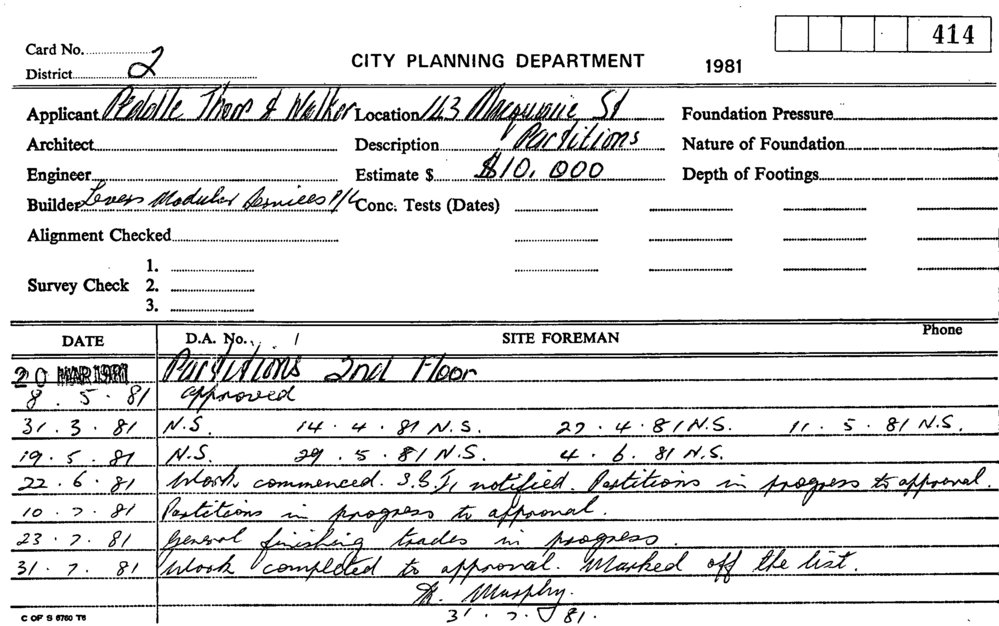 414
Card No.
District 2
CITY PLANNING DEPARTMENT 1981
Applicant Peddle Thorp & Walker Location 143 Macquarie St Foundation Pressure
Architect Description Partitions Nature of Foundation
Engineer Estimate $ $10,000 Depth of Footings
Builder Levers Modular Services P/L Conc. Tests (Dates)
Alignment Checked
1.
Survey Check 2.
3.
DATE D.A. No. SITE FOREMAN Phone
20 MAR 1981 Partitions 2nd Floor
8. 5. 81 approved
31. 3. 81 N.S. 14. 4. 81 N.S. 27. 4. 81 N.S. 11. 5. 81 N.S.
19. 5. 81 N.S. 29. 5. 81 N.S. 4. 6. 81 N.S.
22. 6. 81 Work commenced. notified. Partitions in progress to approval.
10. 7. 81 Partitions in progress to approval.
23. 7. 81 General finishing trades in progress.
31. 7. 81 Work completed to approval. Marked off the list.
Murphy.
31. 7. 81.
C OF S 6760 T6